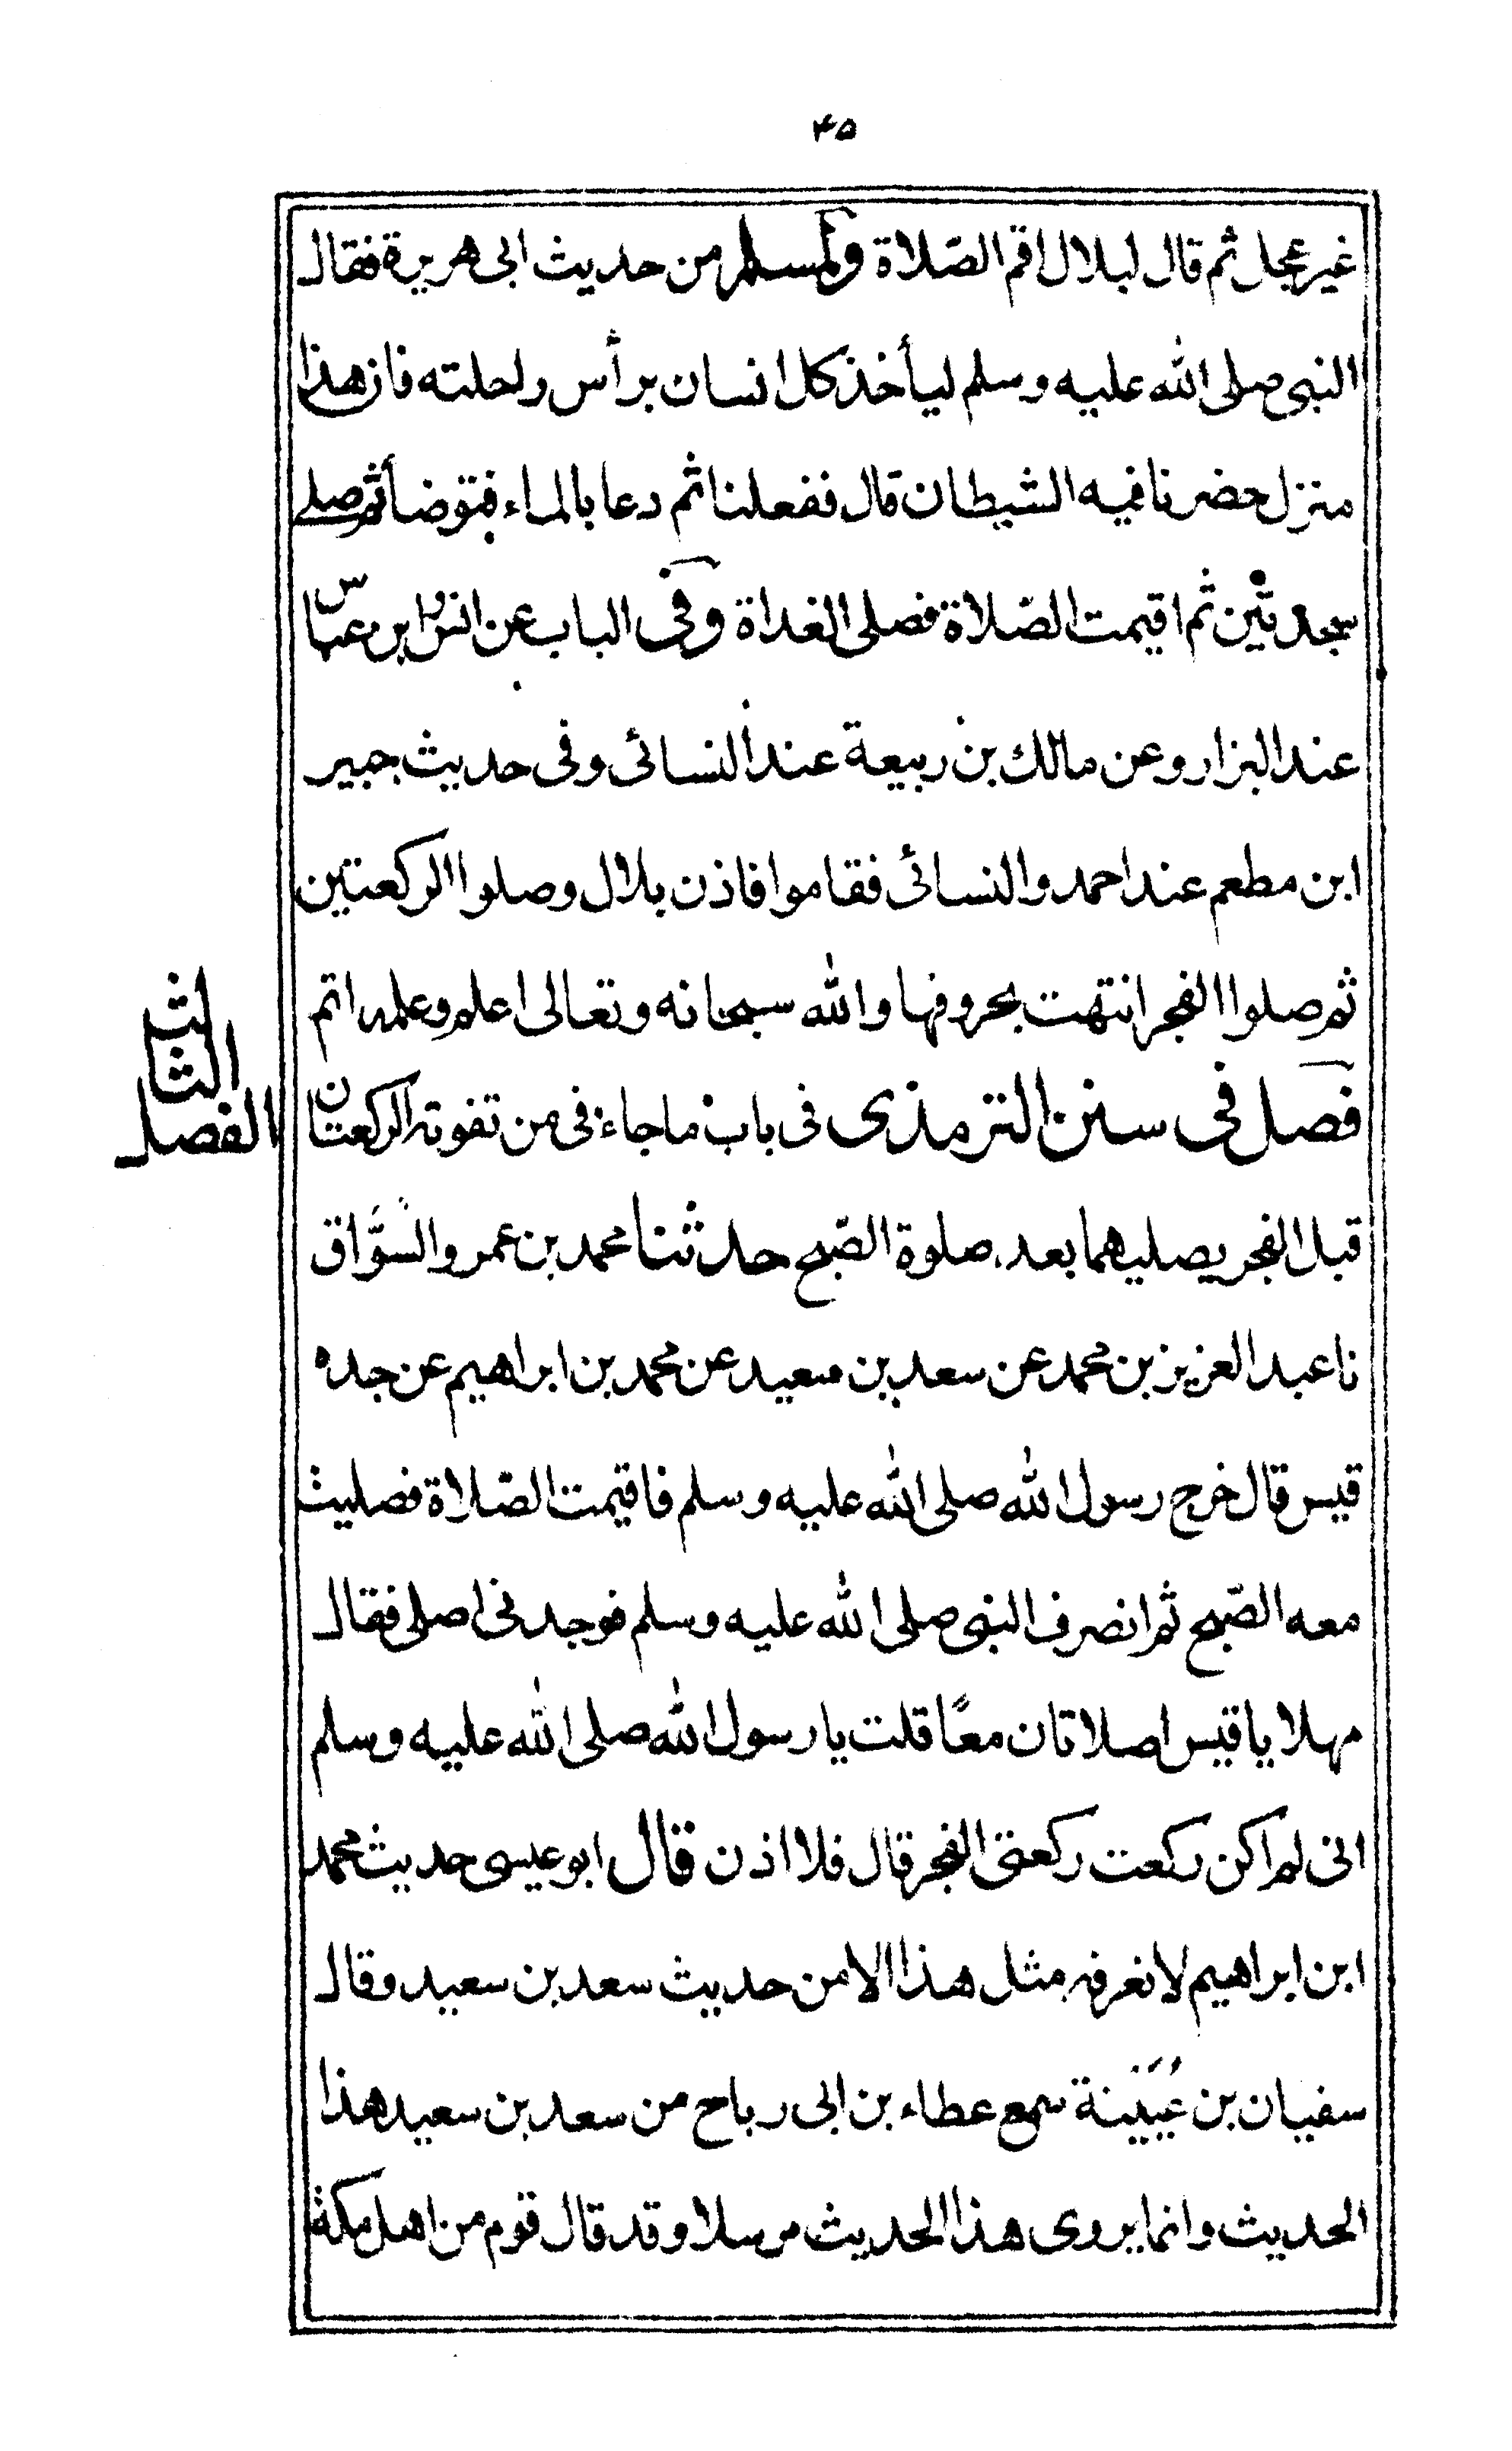 ۴۵
غير عجل ثم قال لبلال اقم الصّلاة ولمسلم من حديث ابى هريرة فقال
النبى صلى الله عليه وسلم ليأخذ كل انسان برأس راحلته فان هذا
منزل حضرنا فيه الشيطان قال ففعلنا ثم دعا بالماء فتوضأ ثم صلى
سجدتين ثم اقيمت الصّلاة فصلى الغداة وفى الباب عن انس وابن عباس
عند البزار وعن مالك بن ربيعة عند النسائى وفى حديث جبير
ابن مطعم عند احمد والنسائى فقاموا فاذن بلال وصلوا الركعتين
ثم صلوا الفجر انتهت بحروفها والله سبحانه وتعالى اعلم وعلمه اتم
الفصل الثالث
فصل فى سنن الترمذى فى باب ما جاء فى من تفوته الركعتان
قبل الفجر يصليهما بعد صلوة الصّبح حدثنا محمد بن عمرو السَّوَّاق
نا عبد العزيز بن محمد عن سعد بن سعيد عن محمد بن ابراهيم عن جده
قيس قال خرج رسول الله صلى الله عليه وسلم فاقيمت الصّلاة فصليت
معه الصّبح ثم انصرف النبى صلى الله عليه وسلم فوجدنى اصلى فقال
مهلا يا قيس اصلاتان معًا قلت يا رسول الله صلى الله عليه وسلم
انى لم اكن ركعت ركعتى الفجر قال فلا اذن قال ابو عيسى حديث محمد
ابن ابراهيم لا نعرفه مثل هذا الا من حديث سعد بن سعيد وقال
سفيان بن عُيَيْنة سمع عطاء بن ابى رباح من سعد بن سعيد هذا
الحديث وانما يروى هذا الحديث مرسلا وقد قال قوم من اهل مكة